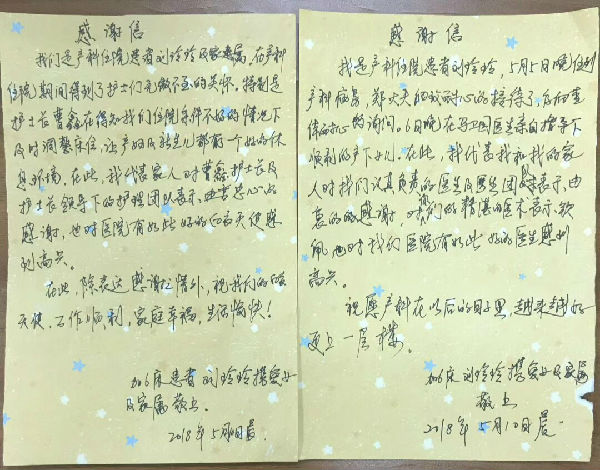 感谢信
我们是产科住院患者刘玲玲及家属,在产科
住院期间得到了护士们无微不至的关怀。特别是
护士长曹鑫在得知我们住院条件不好的情况下
及时调整床位,让产妇及新生儿都有一个好的休
息环境。在此,我代表家人对曹鑫护士长及
护士长领导下的护理团队表示由衷忠心的
感谢,也对医院有如此好的白衣天使感
到高兴。
在此,除表达感谢之情外,祝我们的白衣
天使,工作顺利,家庭幸福,生活愉快!
加6床患者刘玲玲携爱女
及家属敬上.
2018年5月10日晨.
感谢信
我是产科住院患者刘玲玲,5月5日晚住到
产科病房,郑大夫耐心的接待了,后面查
体耐心的询问。6日晚在马卫国医生亲自指导下
顺利的产下女儿。在此,我代表我和我的家
人对我们认真负责的医生及医生团队表示由
衷的感谢,对我们的精湛的医术表示钦
佩,也对我们医院有如此好的医生感到
高兴。
祝愿产科在以后的日子里,越来越好
更上一层楼。
加6床刘玲玲携爱女及家属
敬上
2018年5月10日晨.